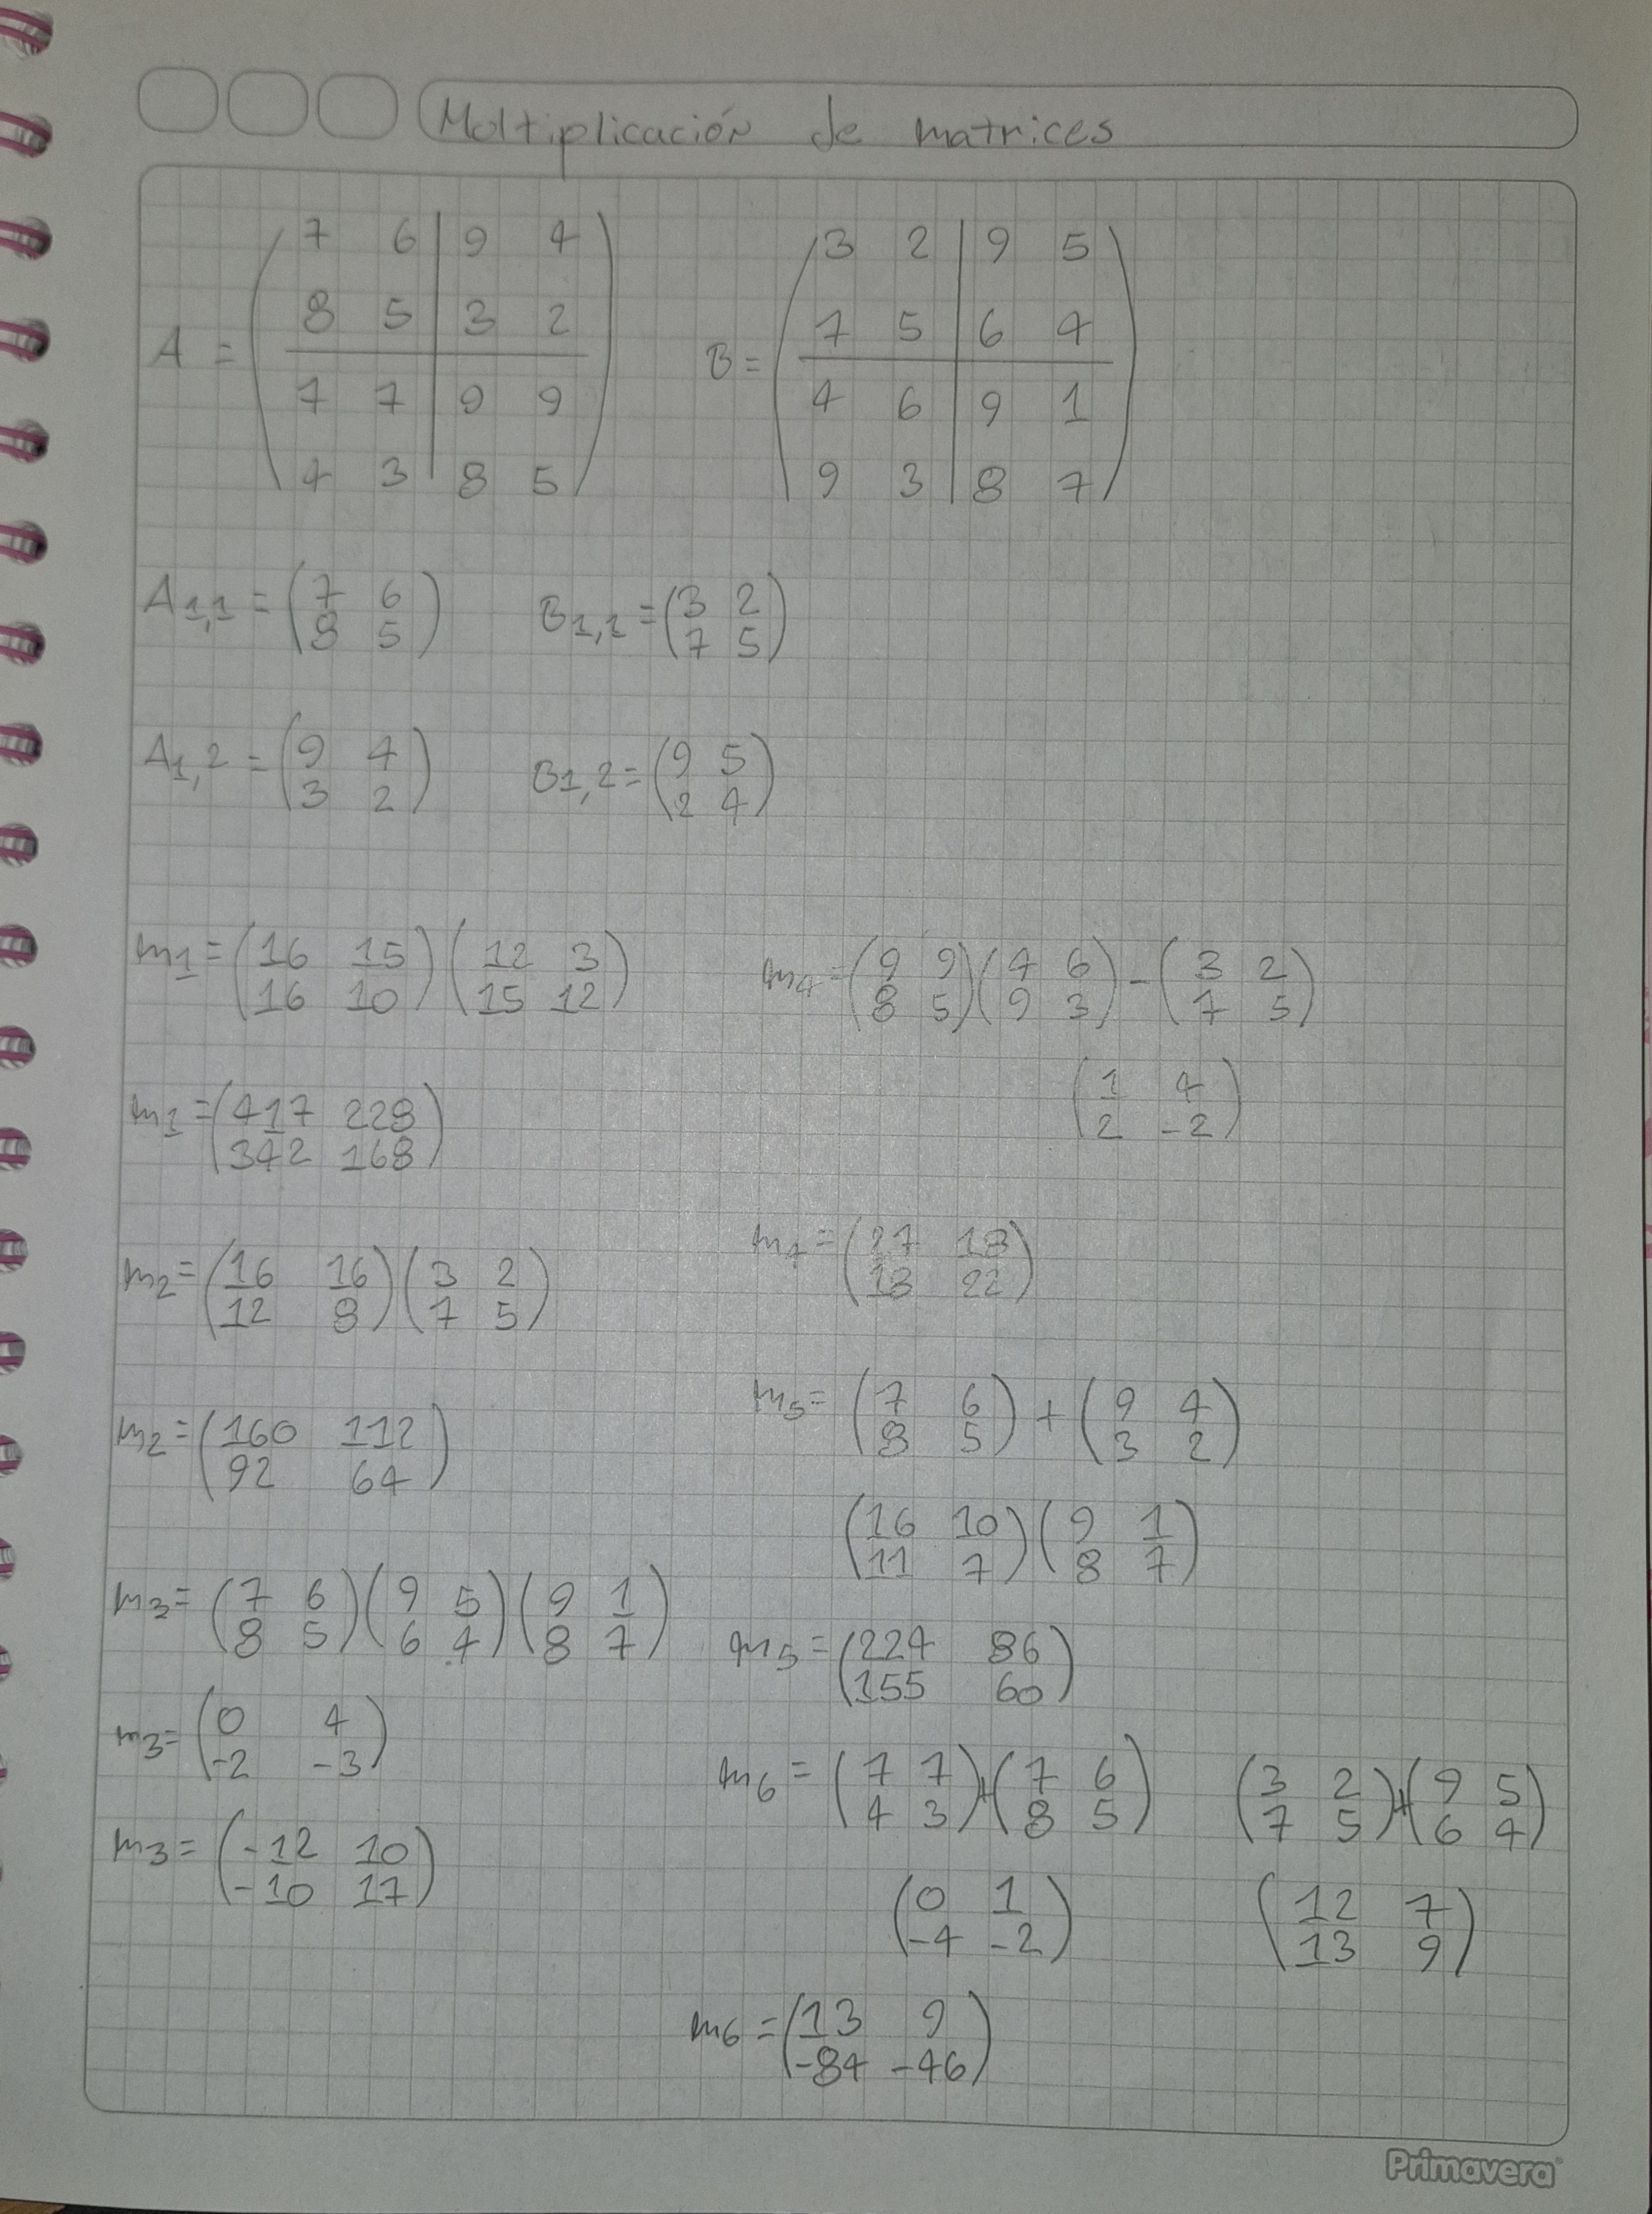 Moltiplicación de matrices
A = ( 7 6 | 9 4
8 5 | 3 2
7 7 | 9 9
4 3 | 8 5 )
B = ( 3 2 | 9 5
7 5 | 6 4
4 6 | 9 1
9 3 | 8 7 )
A1,1 = ( 7 6
8 5 )
B1,1 = ( 3 2
7 5 )
A1,2 = ( 9 4
3 2 )
B1,2 = ( 9 5
2 4 )
m1 = ( 16 15 ) ( 12 3 )
( 16 10 ) ( 15 12 )
m1 = ( 417 228
342 168 )
m2 = ( 16 16 ) ( 3 2 )
( 12 8 ) ( 7 5 )
m2 = ( 160 112
92 64 )
m3 = ( 7 6 ) ( 9 5 ) ( 9 1 )
( 8 5 ) ( 6 4 ) ( 8 7 )
m3 = ( 0 4
-2 -3 )
m3 = ( -12 10
-10 17 )
m4 = ( 9 9 ) ( 4 6 ) - ( 3 2 )
( 8 5 ) ( 9 3 ) ( 7 5 )
( 1 4
2 -2 )
m4 = ( 27 18
18 22 )
m5 = ( 7 6 ) + ( 9 4 )
( 8 5 ) ( 3 2 )
( 16 10 ) ( 9 1 )
( 11 7 ) ( 8 7 )
m5 = ( 224 86
155 60 )
m6 = ( 7 7 ) + ( 7 6 ) ( 3 2 ) + ( 9 5 )
( 4 3 ) ( 8 5 ) ( 7 5 ) ( 6 4 )
( 0 1 ) ( 12 7 )
( -4 -2 ) ( 13 9 )
m6 = ( 13 9
-84 -46 )
Primavera